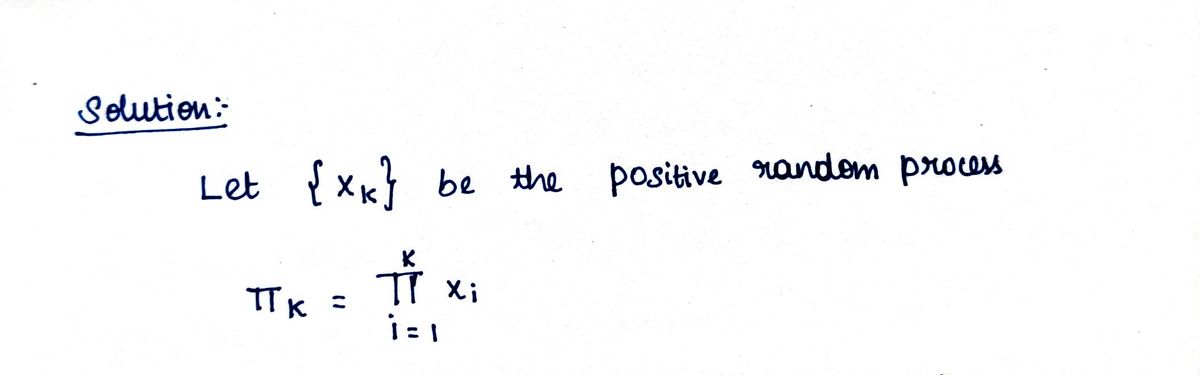 Solution:-
Let {x_K} be the positive random process
π_K = ∏_{i=1}^{K} x_i